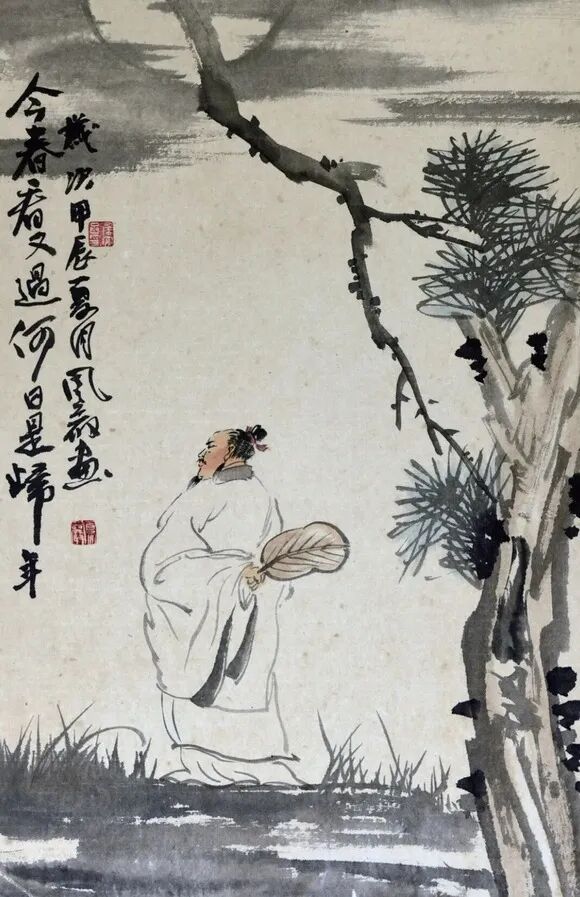 今春看又過何日是歸年
歲次甲辰夏月風畫